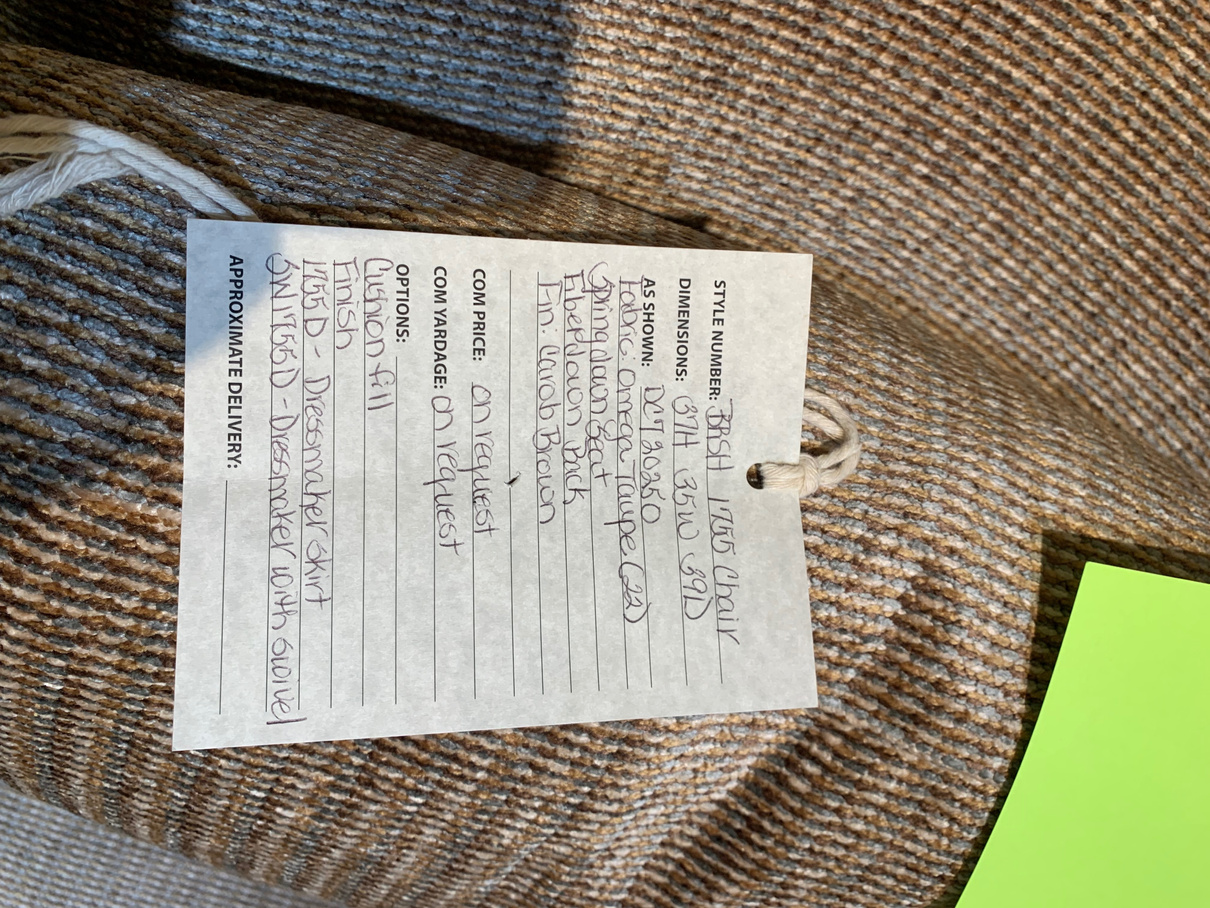 STYLE NUMBER: BASH 1755 Chair
DIMENSIONS: 37H 35W 39D
AS SHOWN: DCT 20250
Fabric: Omega Taupe (22)
Springdown Seat
Fiberdown Back
Fin: Carob Brown
COM PRICE: on request
COM YARDAGE: on request
OPTIONS:
Cushion fill
Finish
1755D - Dressmaker skirt
SW1755D - Dressmaker with swivel
APPROXIMATE DELIVERY: